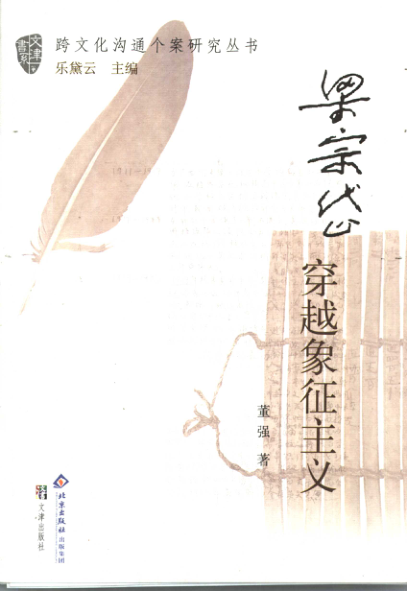 文津
書系
跨文化沟通个案研究丛书
乐黛云 主编
梁宗岱
穿越象征主义
董强 著
文津出版社
北京出版社
出版集团